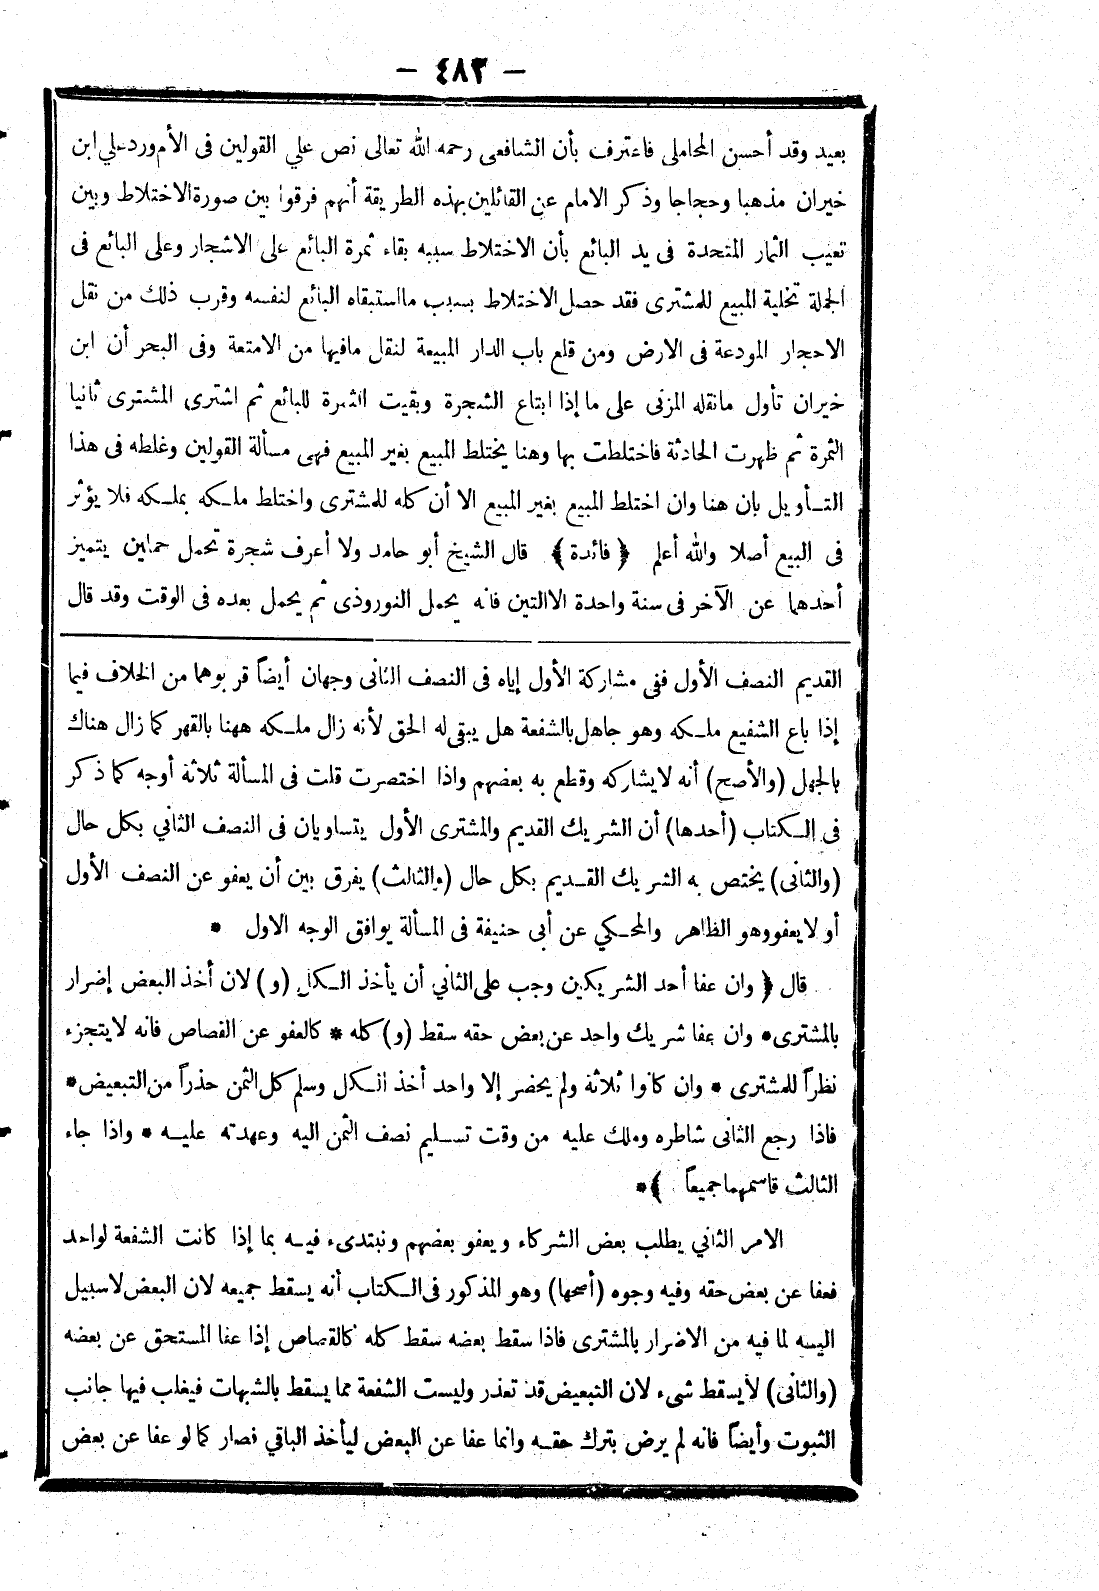 — ٤٨٣ —
بعيد وقد أحسن المحاملى فاعترف بأن الشافعى رحمه الله تعالى نص علي القولين فى الأم ورد علي ابن
خيران مذهبا وحجاجا وذكر الامام عن القائلين بهذه الطريقة أنهم فرقوا بين صورة الاختلاط وبين
تعيب الثمار المتحدة فى يد البائع بأن الاختلاط سببه بقاء ثمرة البائع على الاشجار وعلى البائع فى
الجملة تخلية المبيع للمشترى فقد حصل الاختلاط بسبب ما استبقاه البائع لنفسه وقرب ذلك من نقل
الاحجار المودعة فى الارض ومن قلع باب الدار المبيعة لنقل مافيها من الامتعة وفى البحر أن ابن
خيران تأول مانقله المزنى على ما إذا ابتاع الشجرة وبقيت الثمرة للبائع ثم اشترى المشترى ثانيا
الثمرة ثم ظهرت الحادثة فاختلطت بها وهنا يختلط المبيع بغير المبيع فهى مسألة القولين وغلطه فى هذا
التـأويل بان هنا وان اختلط المبيع بغير المبيع الا أن كله للمشترى واختلط ملـكه بملـكه فلا يؤثر
فى البيع أصلا والله أعلم ﴿ فائدة ﴾ قال الشيخ أبو حامد ولا أعرف شجرة تحمل حملين يتميز
أحدهما عن الآخر فى سنة واحدة الاالتين فانه يحمل النوروذى ثم يحمل بعده فى الوقت وقد قال
القديم النصف الأول ففى مشاركة الأول إياه فى النصف الثانى وجهان أيضاً قربوهما من الخلاف فيما
إذا باع الشفيع ملـكه وهو جاهل بالشفعة هل يبقى له الحق لأنه زال ملـكه ههنا بالقهر كما زال هناك
بالجهل (والأصح) أنه لايشاركه وقطع به بعضهم واذا اختصرت قلت فى المسألة ثلاثة أوجه كما ذكر
فى الـكتاب (أحدها) أن الشريك القديم والمشترى الأول يتساويان فى النصف الثاني بكل حال
(والثانى) يختص به الشريك القـديم بكل حال (والثالث) يفرق بين أن يعفو عن النصف الأول
أو لا يعفووهو الظاهر والمحـكي عن أبى حنيفة فى المسألة يوافق الوجه الاول *
قال ﴿ وان عفا أحد الشريكين وجب على الثاني أن يأخذ الـكل (و) لان أخذ البعض إضرار
بالمشترى* وان عفا شريك واحد عن بعض حقه سقط (و) كله * كالعفو عن القصاص فانه لايتجزء
نظراً للمشترى * وان كانوا ثلاثة ولم يحضر إلا واحد أخذ الـكل وسلم كل الثمن حذراً من التبعيض*
فاذا رجع الثانى شاطره وملك عليه من وقت تسـليم نصف الثمن اليه وعهدته عليـه * واذا جاء
الثالث قاسمهما جميعاً ﴾*
الامر الثاني يطلب بعض الشركاء ويعفو بعضهم ونبتدىء فيـه بما إذا كانت الشفعة لواحد
فعفا عن بعض حقه وفيه وجوه (أصحها) وهو المذكور فى الـكتاب أنه يسقط جميعه لان البعض لاسبيل
اليـه لما فيه من الاضرار بالمشترى فاذا سقط بعضه سقط كله كالقصاص إذا عفا المستحق عن بعضه
(والثانى) لا يسقط شىء لان التبعيض قد تعذر وليست الشفعة مما يسقط بالشبهات فيغلب فيها جانب
الثبوت وأيضاً فانه لم يرض بترك حقـه وانما عفا عن البعض ليأخذ الباقي فصار كما لو عفا عن بعض